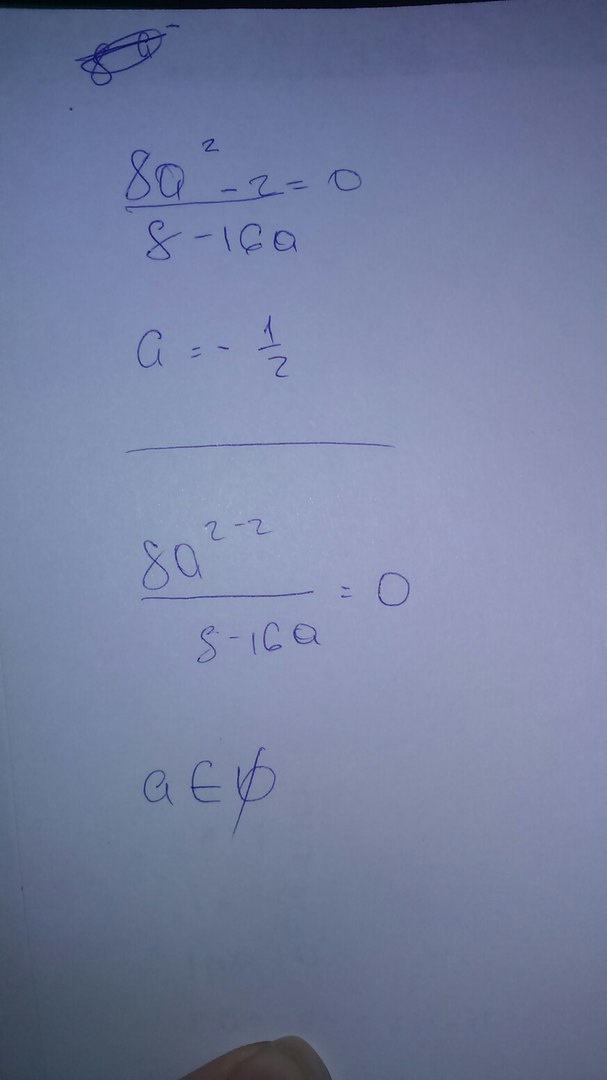 8a² - 2 = 0
8 - 16a
a = - 1/2
8a²⁻² = 0
8 - 16a
a ∈ ∅